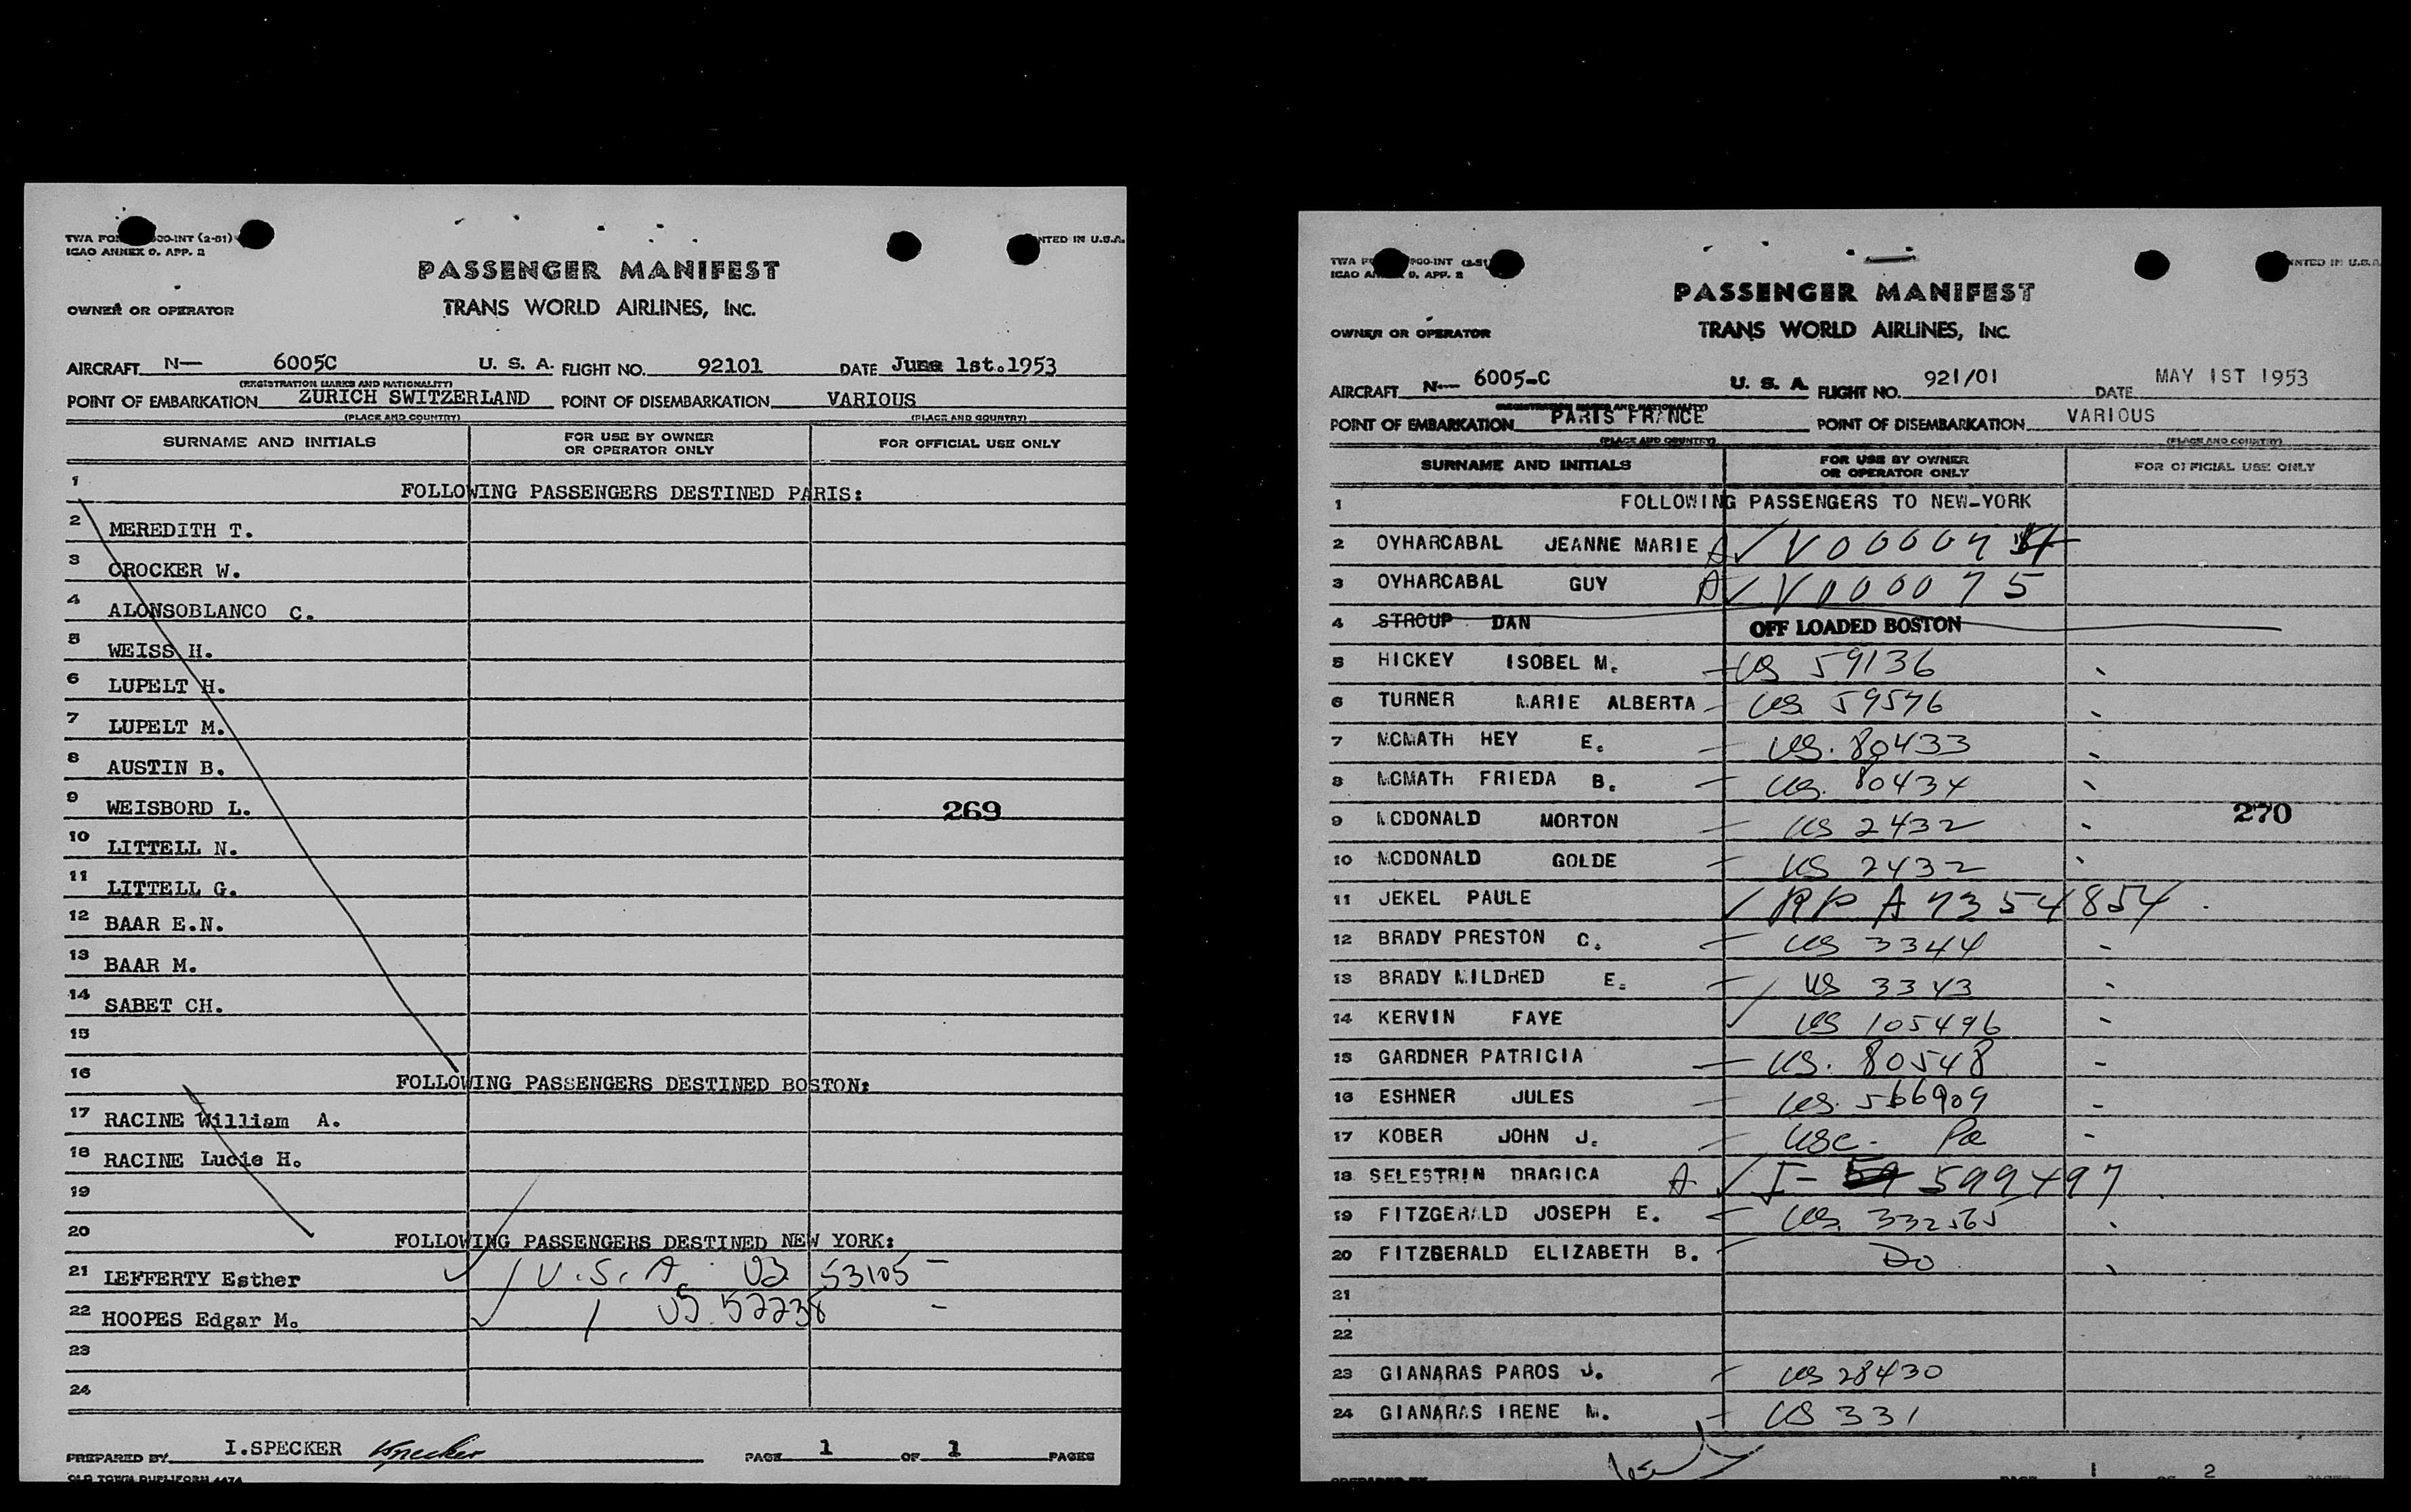 TWA FO 00-INT (2-51) NTED IN U.S.A.
ICAO ANNEX 9. APP. 2
PASSENGER MANIFEST
OWNER OR OPERATOR TRANS WORLD AIRLINES, INC.
AIRCRAFT N— 6005C U. S. A. FLIGHT NO. 92101 DATE June 1st.1953
(REGISTRATION MARKS AND NATIONALITY)
POINT OF EMBARKATION ZURICH SWITZERLAND POINT OF DISEMBARKATION VARIOUS
(PLACE AND COUNTRY) (PLACE AND COUNTRY)
SURNAME AND INITIALS FOR USE BY OWNER OR OPERATOR ONLY FOR OFFICIAL USE ONLY
1 FOLLOWING PASSENGERS DESTINED PARIS:
2 MEREDITH T.
3 CROCKER W.
4 ALONSOBLANCO C.
5 WEISS H.
6 LUPELT H.
7 LUPELT M.
8 AUSTIN B.
9 WEISBORD L. 269
10 LITTELL N.
11 LITTELL G.
12 BAAR E.N.
13 BAAR M.
14 SABET CH.
15
16 FOLLOWING PASSENGERS DESTINED BOSTON:
17 RACINE William A.
18 RACINE Lucie H.
19
20 FOLLOWING PASSENGERS DESTINED NEW YORK:
21 LEFFERTY Esther U.S.A. US 53105 -
22 HOOPES Edgar M. US 52238 -
23
24
PREPARED BY I.SPECKER Specker PAGE 1 OF 1 PAGES
OLD TOWN DUPLIFORM 4474
TWA F 900-INT (2-51) NTED IN U.S.A
ICAO A 9. APP. 2
PASSENGER MANIFEST
OWNER OR OPERATOR TRANS WORLD AIRLINES, INC.
AIRCRAFT N— 6005-C U. S. A FLIGHT NO. 921/01 DATE MAY 1ST 1953
(REGISTRATION MARKS AND NATIONALITY)
POINT OF EMBARKATION PARIS FRANCE POINT OF DISEMBARKATION VARIOUS
(PLACE AND COUNTRY) (PLACE AND COUNTRY)
SURNAME AND INITIALS FOR USE BY OWNER OR OPERATOR ONLY FOR OFFICIAL USE ONLY
1 FOLLOWING PASSENGERS TO NEW-YORK
2 OYHARCABAL JEANNE MARIE A V000074
3 OYHARCABAL GUY A V000075
4 STROUP DAN OFF LOADED BOSTON
5 HICKEY ISOBEL M. - US 59136
6 TURNER MARIE ALBERTA - US. 59576
7 MCMATH HEY E. - US. 80433
8 MCMATH FRIEDA B. - US. 80434
9 MCDONALD MORTON - US 2432 270
10 MCDONALD GOLDE - US 2432
11 JEKEL PAULE RP A7354854
12 BRADY PRESTON C. - US 3344
13 BRADY MILDRED E. - US 3343
14 KERVIN FAYE US 105496
15 GARDNER PATRICIA - US. 80548
16 ESHNER JULES - US. 566909
17 KOBER JOHN J. - USC - Pa
18 SELESTRIN DRAGICA A I- 599497
19 FITZGERALD JOSEPH E. - US. 332565
20 FITZGERALD ELIZABETH B. - Do
21
22
23 GIANARAS PAROS J. - US 28430
24 GIANARAS IRENE M. - US 331
PREPARED BY PAGE 1 OF 2 PAGES